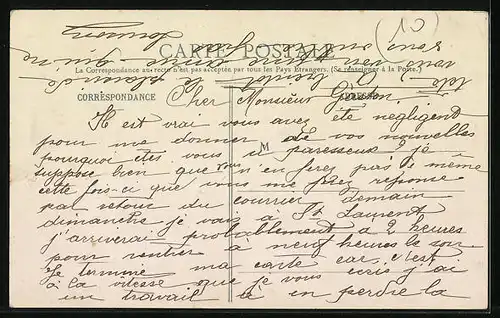 CARTE POSTALE
La Correspondance au recto n'est pas acceptée par tous les Pays Etrangers. (Se renseigner à la Poste.)
CORRESPONDANCE
Cher Monsieur Gaston.
Il est vrai vous avez été négligent
pour me donner de vos nouvelles
pourquoi êtes vous si paresseux? je
suppose bien que vous n'en ferez pas de même
cette fois-ci que vous me ferez réponse
par retour du courrier demain
dimanche je vais à St Laurent
j'arriverai probablement à 2 heures
pour rentrer à neuf heures le soir
Je termine ma carte car c'est
à la vitesse que je vous écris j'ai
un travail à en perdre la
tête
(10)